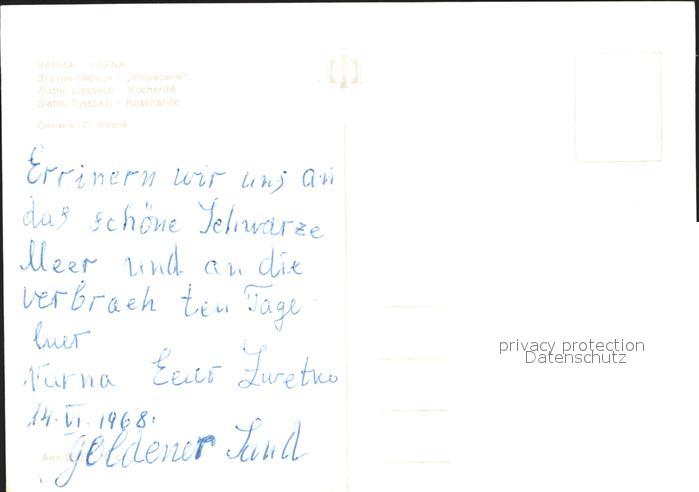 ВАРНА - VARNA
Златни пясъци - „Кошарите"
Zlatni piassatzi - Kocharité
Slatni Pjassazi - Koscharite
Снимка: Г.
Errinern wir uns an
das schöne Schwarze
Meer und an die
verbrach ten Tage
huer
Varna Euer Zwetko
14. VI. 1968.
goldener Sand
privacy protection
Datenschutz